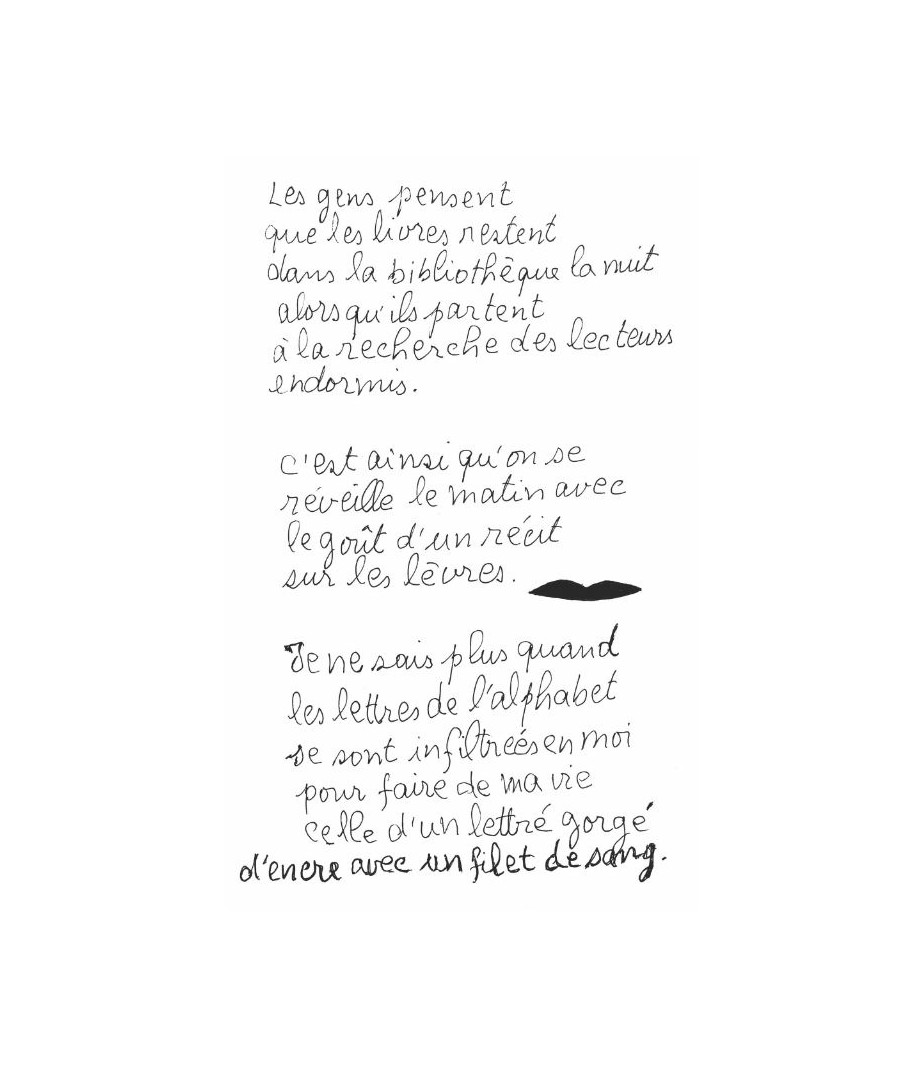 Les gens pensent
que les livres restent
dans la bibliothèque la nuit
alors qu'ils partent
à la recherche des lecteurs
endormis.
C'est ainsi qu'on se
réveille le matin avec
le goût d'un récit
sur les lèvres.
Je ne sais plus quand
les lettres de l'alphabet
se sont infiltreés en moi
pour faire de ma vie
celle d'un lettré gorgé
d'encre avec un filet de sang.